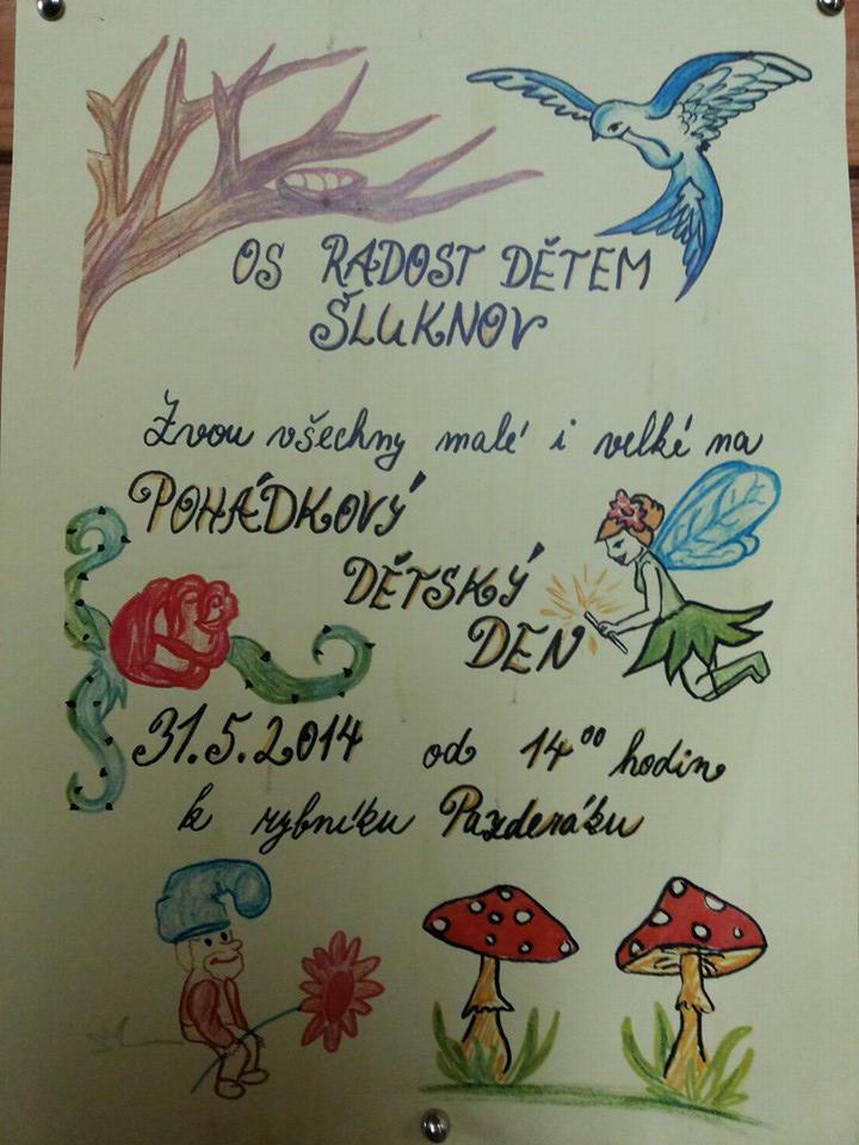 OS RADOST DĚTEM
ŠLUKNOV
Zvou všechny malé i velké na
POHÁDKOVÝ
DĚTSKÝ
DEN
31.5.2014 od 14⁰⁰ hodin
k rybníku Pazderáku